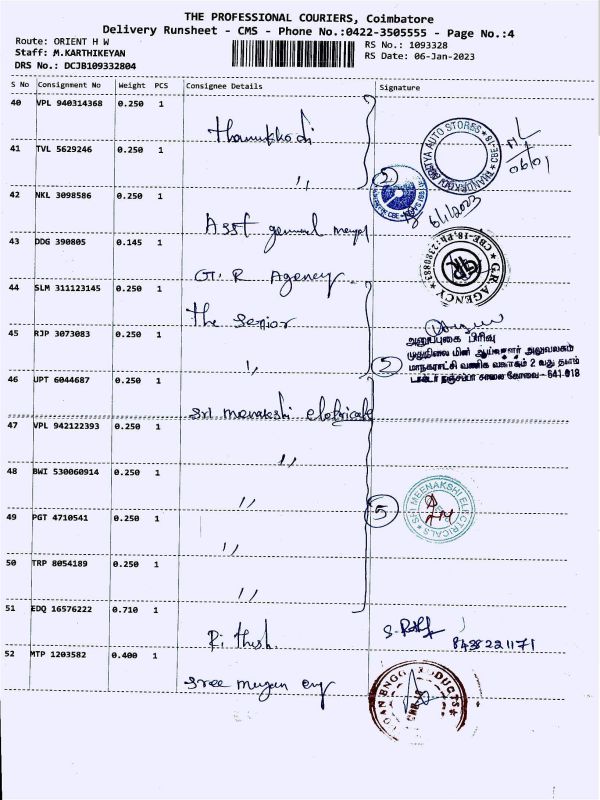 THE PROFESSIONAL COURIERS, Coimbatore
Delivery Runsheet - CMS - Phone No.:0422-3505555 - Page No.:4
Route: ORIENT H W
RS No.: 1093328
Staff: M.KARTHIKEYAN
RS Date: 06-Jan-2023
DRS No.: DCJB109332804
S No Consignment No Weight PCS Consignee Details Signature
40 VPL 940314368 0.250 1
41 TVL 5629246 0.250 1 ,,
AUTO STORES CBE-18
06/01
2
6/1/2023
42 NKL 3098586 0.250 1
Asst
43 DDG 390805 0.145 1
G.R Agency
G.R. AGENCY CBE-18, Ph: 2380883 GR
44 SLM 311123145 0.250 1
The Senior
45 RJP 3073083 0.250 1 ,,
2
அனுப்புகை பிரிவு
முதுநிலை மின் ஆய்வாளர் அலுவலகம்
மாநகராட்சி வணிக வளாகம் 2 வது தளம்
டாக்டர் நஞ்சப்பா சாலை கோவை - 641 018
46 UPT 6044687 0.250 1
Sri Menakshi
47 VPL 942122393 0.250 1 ,,
48 BWI 530060914 0.250 1 ,,
5
SRI MEENAKSHI ELECTRICALS
49 PGT 4710541 0.250 1 ,,
50 TRP 8054189 0.250 1 ,,
51 EDQ 16576222 0.710 1
8438221171
52 MTP 1203582 0.400 1
Sree